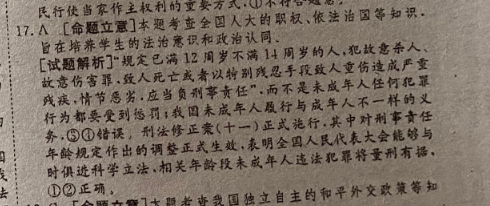 民行使当家作主权利的重要方式,①不符合题意。
17. A [命题立意]本题考查全国人大的职权、依法治国等知识,
旨在培养学生的法治意识和政治认同。
[试题解析]“规定已满 12 周岁不满 14 周岁的人,犯故意杀人、
故意伤害罪,致人死亡或者以特别残忍手段致人重伤造成严重
残疾,情节恶劣,应当负刑事责任”,而不是未成年人任何犯罪
行为都要受到惩罚;我国未成年人履行与成年人不一样的义
务,③④错误。刑法修正案(十一)正式施行,其中对刑事责任
年龄规定作出的调整正式生效,表明全国人民代表大会能够与
时俱进科学立法,相关年龄段未成年人违法犯罪将量刑有据,
①②正确。
[命题立意]本题考查我国独立自主的和平外交政策等知